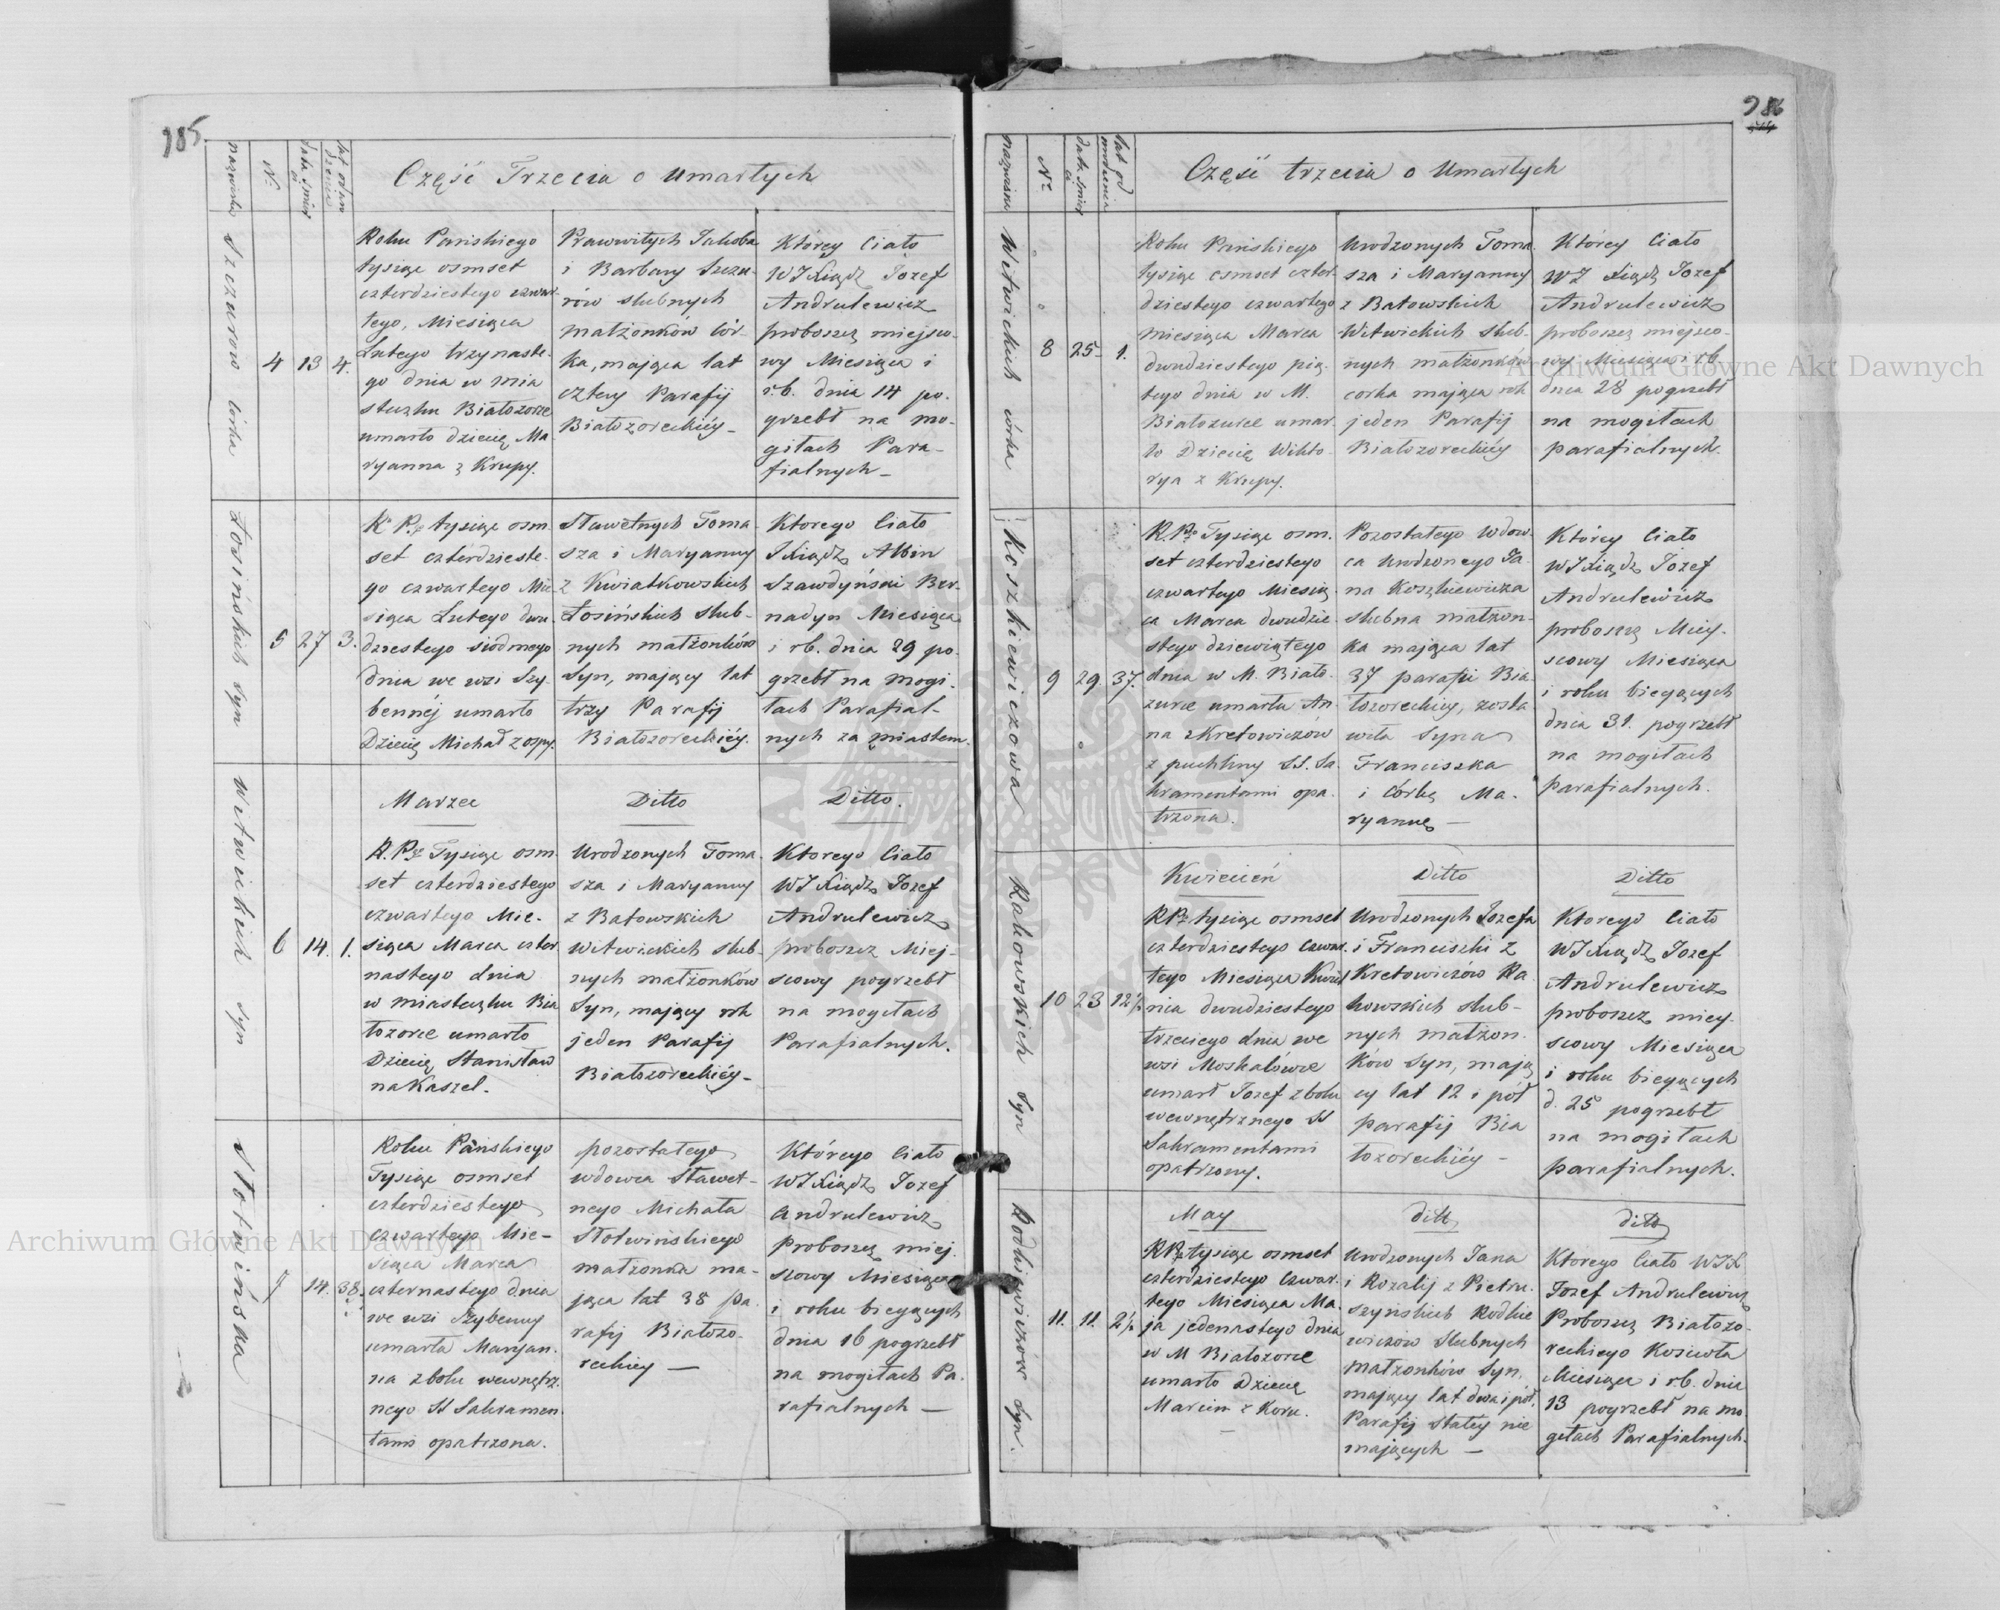 985
nazwiska
Nº
data śmierci
lat od urodzenia
Część Trzecia o Umarłych
Szczurów córka
4
13
4.
Roku Pańskiego
tysiąc osmset
czterdziestego czwar-
tego, Miesiąca
Lutego trzynaste-
go dnia w mia
steczku Białozorce
umarło dziecię Ma
ryanna z Krupy.
Prawowitych Jakoba
i Barbary Szczu-
rów slubnych
małżonków cór-
ka, mająca lat
cztery Parafij
Białozoreckiéy –
Którey Ciało
WJXiądz Jozef
Andrulewicz
proboszcz miejsco-
wy Miesiąca i
r.b. dnia 14 po-
grzebł na mo-
giłach Para-
fialnych –
Łosińskich Syn
5
27
3.
R. P. tysiąc osm-
set czterdzieste-
go czwartego Mie
siąca Lutego dwu-
dziestego siódmego
dnia we wsi Szy-
bennéj umarło
Dziecię Michał z ospy.
Sławetnych Toma-
sza i Maryanny
z Kwiatkowskich
Łosińskich slub-
nych małżonków
Syn, mający lat
trzy Parafij
Białozoreckiéy.
Ktorego Ciało
JXiądz Albin
Szawdyński Ber-
nadyn Miesiąca
i rb. dnia 29 po-
grzebł na mogi-
łach Parafial-
nych za miastem.
Witwickich Syn
6
14.
1.
Marzec
R. P. Tysiąc osm-
set czterdziestego
czwartego Mie-
siąca Marca czter
nastego dnia
w miasteczku Bia
łozorce umarło
Dziecię Stanisław
na Kaszel.
Ditto
Urodzonych Toma-
sza i Maryanny
z Batowskich
Witwickich slub-
nych małżonków
Syn, mający rok
jeden Parafij
Białozoreckiéy –
Ditto.
Ktorego Ciało
WJXiądz Jozef
Andrulewicz
proboszcz Miej-
scowy pogrzebł
na mogiłach
Parafialnych.
Słotwińska
7
14.
38.
Roku Pańskiego
Tysiąc osmset
czterdziestego
czwartego Mie-
siąca Marca
czternastego dnia
we wsi Szybenny
umarła Maryan-
na z bolu wewnętrz-
nego SS Sakramen
tami opatrzona.
pozostałego
wdowca Sławet-
nego Michała
Słotwińskiego
małżonka ma-
jąca lat 38 pa-
rafij Białozo-
reckiey –
Którego Ciało
WJXiądz Jozef
Andrulewicz
Proboszcz miej-
scowy Miesiąca
i roku bieżących
dnia 16 pogrzebł
na mogiłach Pa-
rafialnych –
986
nazwiska
Nº
data śmierci
lat od urodzenia
Część trzecia o Umarłych
Witwickich córka
8
25
1.
Roku Pańskiego
tysiąc osmset czter-
dziestego czwartego
miesiąca Marca
dwudziestego pią-
tego dnia w M.
Białozurce umar-
ło Dziecię Wikto-
rya z Krupy.
Urodzonych Toma
sza i Maryanny
z Batowskich
Witwickich slub-
nych małżonków
corka mająca rok
jeden Parafij
Białozoreckiéy
Którey Ciało
WJ Xiądz Jozef
Andrulewicz
proboszcz miejsco-
wy Miesiąca i rb.
dnia 28 pogrzebł
na mogiłach
parafialnych.
Koszkiewiczowa
9
29
37.
R P. Tysiąc osm-
set czterdziestego
czwartego Miesią
ca Marca dwudzie-
stego dziewiątego
dnia w M. Biało-
zurce umarła An-
na z Kretowiczów
z puchliny SS. Sa-
kramentami opa-
trzona.
Pozostałego wdow-
ca urodzonego Ja-
na Koszkiewicza
slubna małżon-
ka mająca lat
37 parafii Bia-
łozoreckiey, zosta
wiła Syna
Franciszka
i Córkę Ma-
ryannę –
Którey Ciało
WJXiądz Jozef
Andrulewicz
proboszcz Miey-
scowy Miesiąca
i roku bieżących
dnia 31. pogrzebł
na mogiłach
parafialnych.
Rakowskich Syn
10
23
12½
Kwiecień
R P. tysiąc osmset
czterdziestego czwar-
tego Miesiąca Kwiet
nia dwudziestego
trzeciego dnia we
wsi Moskalówce
umarł Jozef z bolu
wewnętrznego SS
Sakramentami
opatrzony.
Ditto
Urodzonych Jozefa
i Franciszki z
Kretowiczów Ra
kowskich slub-
nych małżon-
ków Syn, mają
cy lat 12 i pół
parafij Bia
łozoreckiéy –
Ditto
Ktorego Ciało
WJXiądz Jozef
Andrulewicz
proboszcz miey-
scowy Miesiąca
i roku bieżących
d. 25 pogrzebł
na mogiłach
parafialnych.
Rodkiewiczów Syn.
11.
11.
2½
May
R P. tysiąc osmset
czterdziestego Czwar-
tego Miesiąca Ma-
ja jedenastego dnia
w M Białozorce
umarło Dziecię
Marcin z Koru.
ditto
Urodzonych Jana
i Rozalij z Pietru-
szyńskich Rodkie
wiczów Slubnych
małżonków Syn,
mający lat dwa i pół,
Parafij stałey nie
mających –
ditto
Ktorego Ciało WJX
Jozef Andrulewicz
Proboszcz Białozo-
reckiego Kościoła
Miesiąca i rb. dnia
13 pogrzebł na mo-
giłach Parafialnych.
Archiwum Główne Akt Dawnych
Archiwum Główne Akt Dawnych